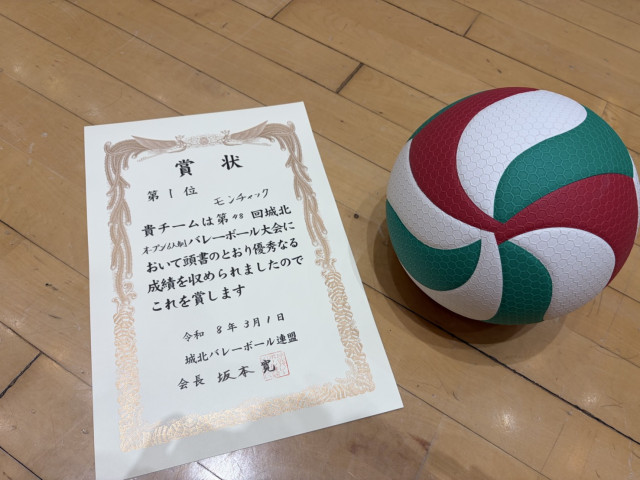 賞状
第1位 モンチャック
貴チームは第48回城北
オープン6人制バレーボール大会に
おいて頭書のとおり優秀なる
成績を収められましたので
これを賞します
令和8年3月1日
城北バレーボール連盟
会長 坂本寛